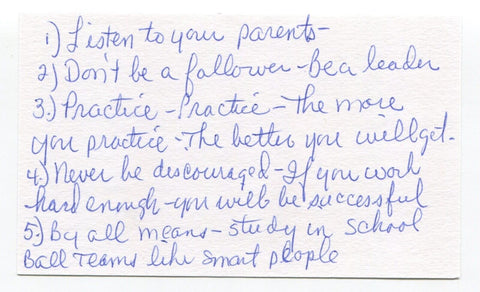 1) Listen to your parents-
2) Don't be a follower - Be a leader
3.) Practice - Practice - The more
you practice - The better you will get.
4.) Never be descouraged - If you work
hard enough - you will be successful
5.) By all means - study in School
Ball Teams like smart people